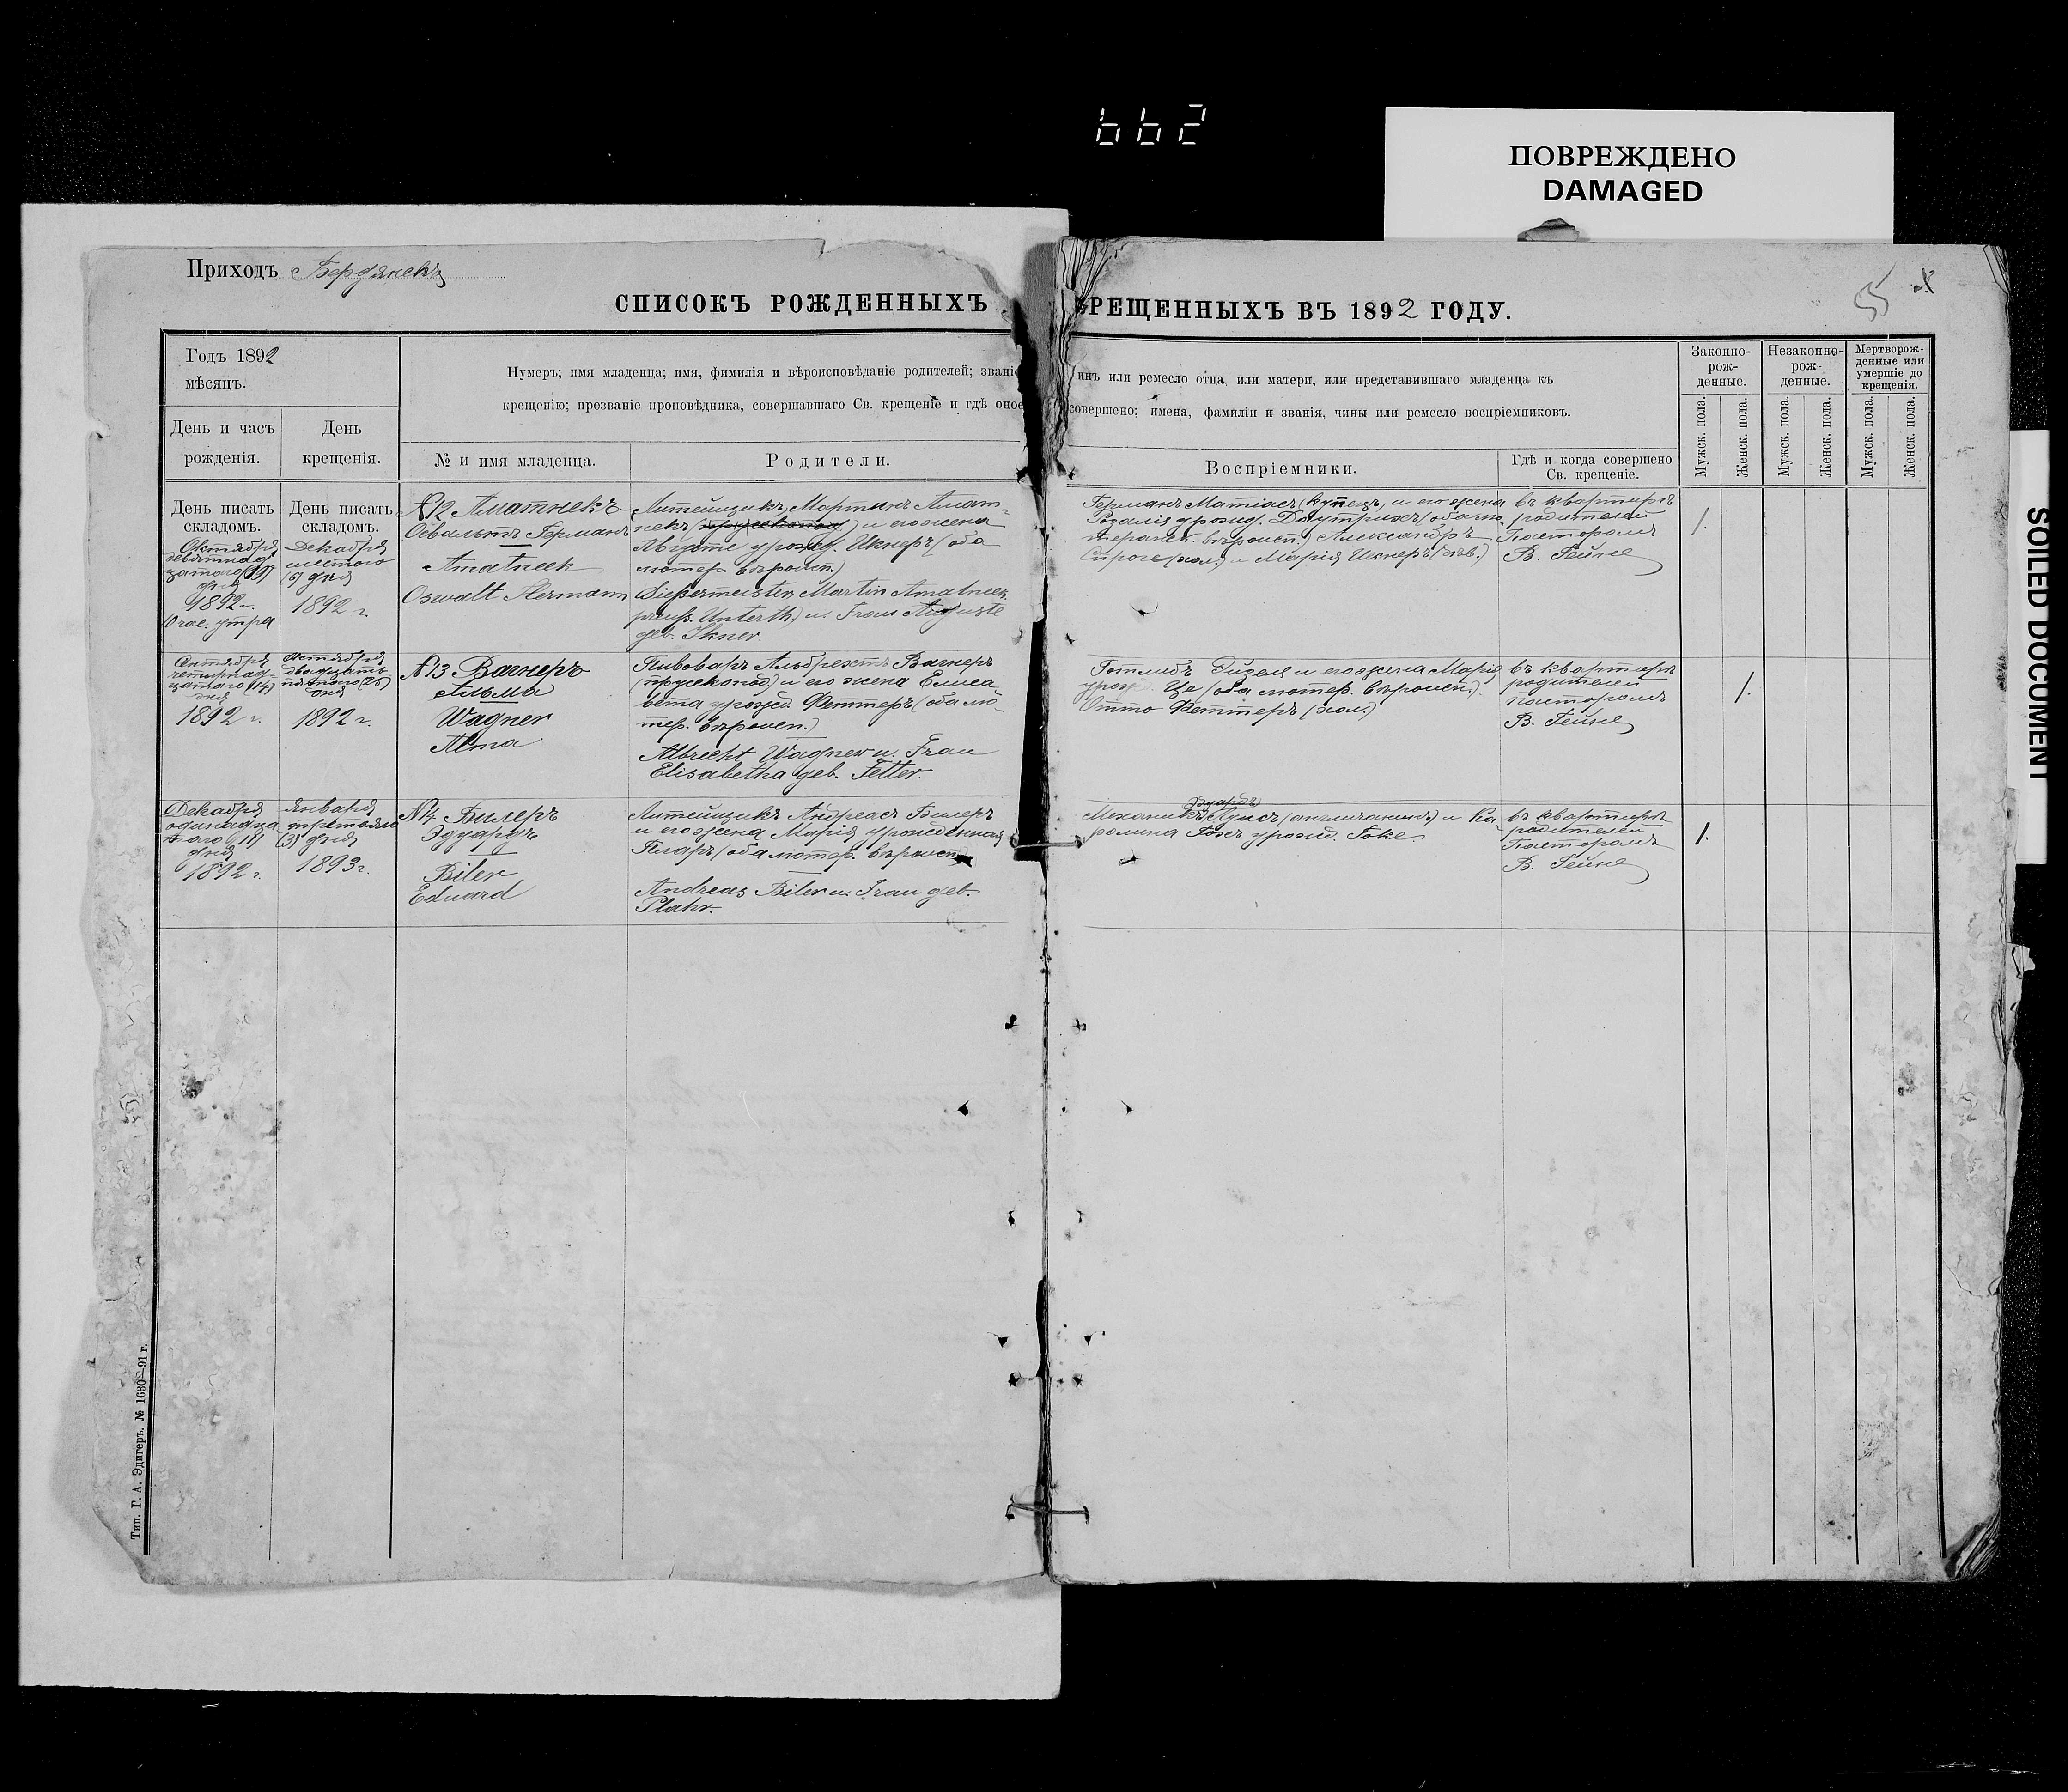 662
ПОВРЕЖДЕНО
DAMAGED
SOILED DOCUMENT
Приходъ Бердянскъ
55
СПИСОКЪ РОЖДЕННЫХЪ
РЕЩЕННЫХЪ ВЪ 1892 ГОДУ.
Годъ 1892
мѣсяцъ.
День и часъ
рожденія.
День
крещенія.
Нумеръ; имя младенца; имя, фимилія и вѣроисповѣданіе родителей; звані
крещенію; прозваніе проповѣдника, совершавшаго Св. крещеніе и гдѣ оное
№ и имя младенца.
Родители.
инъ или ремесло отца, или матери, или представившаго младенца къ
совершено; имена, фамиліи и званія, чины или ремесло воспріемниковъ.
Воспріемники.
Гдѣ и когда совершено
Св. крещеніе.
Законно-
рож-
денные.
Незаконно-
рож-
денные.
Мертворож-
денные или
умершіе до
крещенія.
Мужск. пола.
Женск. пола.
Мужск. пола.
Женск. пола.
Мужск. пола.
Женск. пола.
День писать
складомъ.
Октября
девятнад
цатаго (19)
дня
1892 г.
День писать
складомъ.
Декабря
шестого
(6) дня
1892 г.
№12 Аматнекъ
Освальтъ Германъ
Amatneek
Oswalt Hermann
Литейщикъ Мартинъ Амат-
некъ и его жена
Августе урожд. Икнеръ (оба
лютер. вѣроисп.)
Martin Amatneek
preuß. Unterth.) u. Frau Auguste
geb. Ikner.
Германъ Матіасъ (купецъ) и его жена
Розалія урожд. Даутрихъ (оба лю-
теранск. вѣроисп.) Александръ
(хол.) и Марія Икнеръ (дѣв.)
въ квартирѣ
родителей
Пасторомъ
В. Гейне
1.
Сентября
четырнад-
цатаго (14)
дня
1892 г.
Октября
двадцать
пятаго (25)
дня
1892 г.
№13 Вагнеръ
Альма
Wagner
Alma
Пивоваръ Альбрехтъ Вагнеръ
(прускопод) и его жена Елиса-
вета урожд. Феттеръ (оба лю-
тер. вѣроисп.)
Albrecht Wagner u. Frau
Elisabetha geb. Fetter.
Готлибъ и его жена Марія
урожд. Це (оба лютер. вѣроисп.)
Отто Феттеръ (хол.)
въ квартирѣ
родителей
пасторомъ
В. Гейне
1.
Декабря
одинадца
таго (11)
дня
1892 г.
Января
третьяго
(3) дня
1893 г.
№14 Билеръ
Эдуардъ
Biler
Eduard
Литейщикъ Андреасъ Билеръ
и его жена Марія урожденная
Пларъ (оба лютер. вѣроисп.)
Andreas Biler u. Frau geb.
Plahr.
Эдуардъ
Механикъ (англичанинъ) и Ка-
ролина урожд. Гоке.
въ квартирѣ
родителей
Пасторомъ
В. Гейне
1.
Тип. Г. А. Эдигеръ. № 1630—91 г.